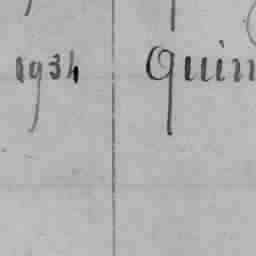 1934 Quin